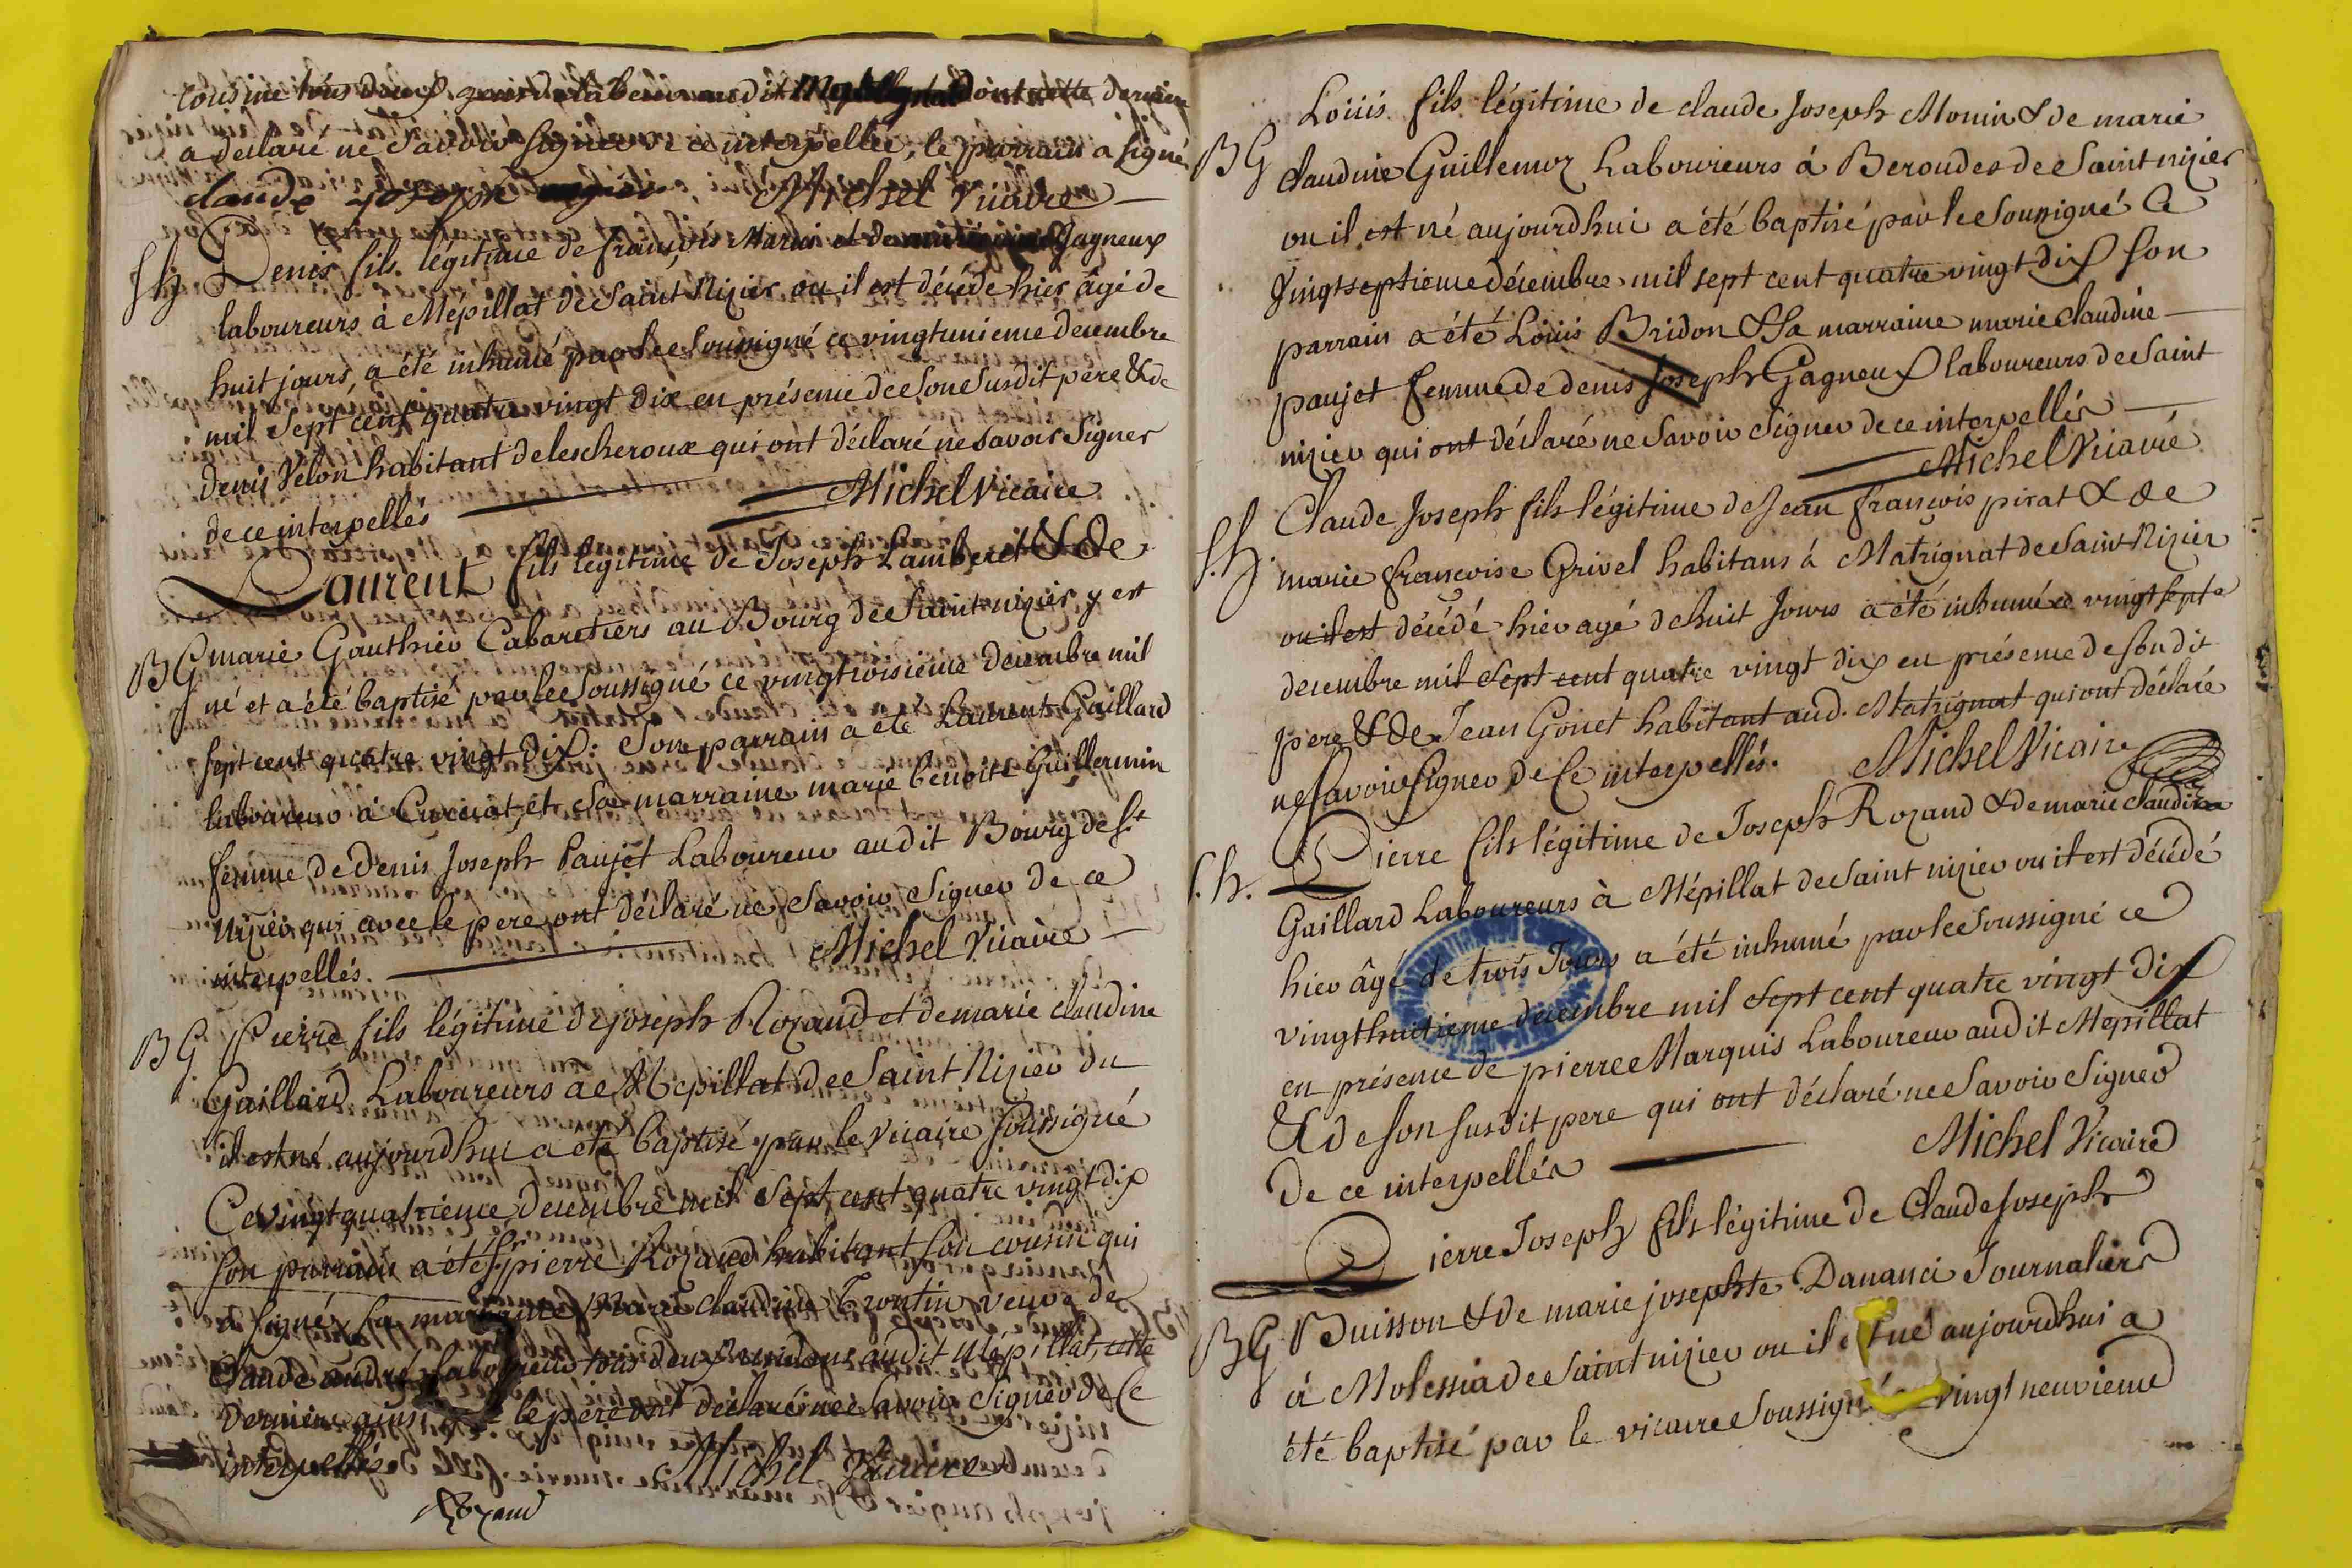 cousine tous deux audit dont cette derniere
a déclaré ne savoir signer de ce interpellée, le parrain a signé
claude joseph Michel Vicaire
sh Denis fils légitime de françois Marui et de Gagneux
laboureurs à Mépillat de Saint Nizier ou il est décédé hier âgé de
huit jours, a été inhumé par le soussigné ce vingtunieme decembre
mil sept cent quatre vingt dix en présence de son susdit pere & de
denis Velon habitant de lescheroux qui ont déclaré ne savoir signer
de ce interpellés Michel Vicaire
Laurent fils légitime de Joseph Lamberet & de
BG marie Gauthier Cabaretiers au Bourg de Saint nizier y est
né et a été baptisé par le soussigné ce vingtroisieme decembre mil
sept cent quatre vingt dix. Son parrain a été Laurent Gaillard
laboureur à Curciat, et sa marraine marie benoite Guillermin
femme de denis Joseph Paujet Laboureur audit Bourg de st
nizier qui avec le pere ont déclaré ne savoir signer de ce
interpellés. Michel Vicaire
BG Pierre fils légitime de joseph Rozand et de marie claudine
Gaillard Laboureurs a Mepillat de Saint Nizier ou
il est né aujourdhui a été baptisé par le vicaire soussigné
Ce vingt quatrieme decembre mil sept cent quatre vingt dix
son parrain a été sr pierre Rozand habitant son cousin qui
a signé sa marraine marie claudine Trontin veuve de
claude andré laboureur tous deux audit Mépillat, cette
derniere ainsi que le pere ont déclaré ne savoir signer de Ce
interpellés Michel Vicaire
Rozand
Loüis fils légitime de claude Joseph Monin & de marie
BG claudine Guillemoz Laboureurs à Beroudes de Saint nizier
ou il est né aujourdhui a été baptisé par le soussigné Ce
vingtseptieme décembre mil sept cent quatre vingt dix son
parrain a été Loüis Bridon & sa marraine marie claudine
paujet femme de denis Joseph Gagneux laboureurs de Saint
nizier qui ont déclaré ne savoir signer de ce interpellés
Michel Vicaire
Claude Joseph fils légitime de Jean françois pirat & de
s.h. marie françoise Grivel habitans à Matrignat de Saint Nizier
ou il est décédé hier agé de huit Jours a été inhumé ce vingt sept e
decembre mil sept cent quatre vingt dix en présence de son dit
pere & de Jean Gonet habitant aud. Matrignat qui ont déclaré
ne savoir signer de Ce interpellés. Michel Vicaire
Pierre fils légitime de Joseph Rozand & de marie claudine
s.h. Gaillard Laboureurs à Mépillat de Saint nizier ou il est décédé
hier âgé de trois Jours a été inhumé par le soussigné ce
vingthuitieme decembre mil sept cent quatre vingt dix
en présence de pierre Marquis Laboureur audit Mepillat
& de son susdit pere qui ont déclaré ne savoir signer
de ce interpellés Michel Vicaire
Pierre Joseph fils légitime de Claude Joseph
BG Buisson & de marie josephte Dananci Journaliers
à Molessia de Saint nizier ou il est né aujourdhui a
été baptisé par le vicaire soussigné vingt neuvieme